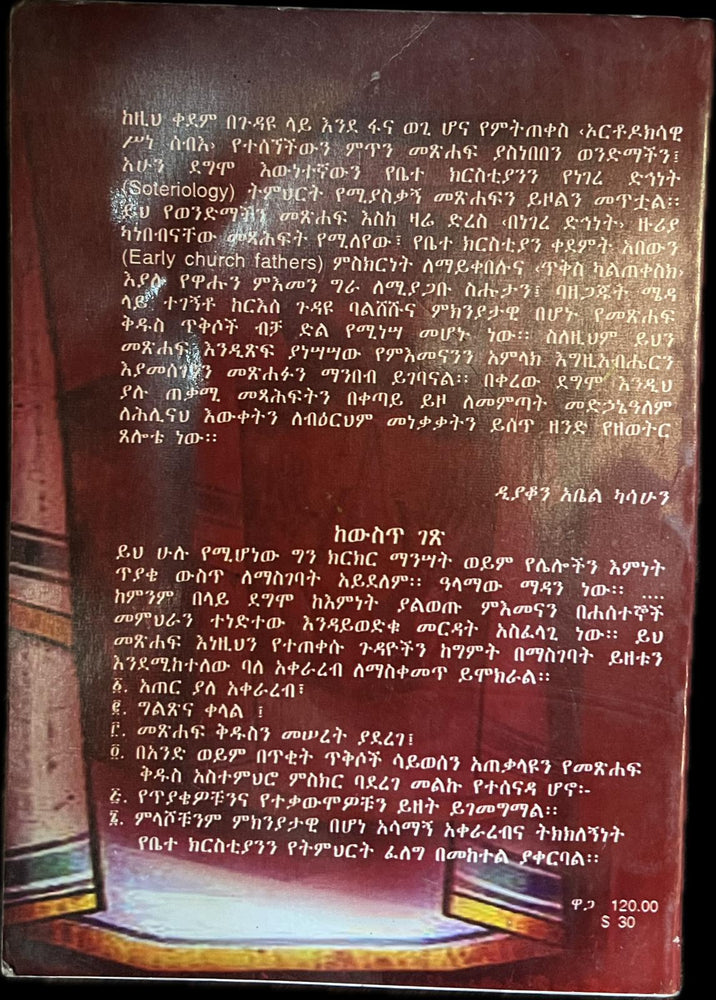 ከዚህ ቀደም በጉዳዩ ላይ እንደ ፋና ወጊ ሆና የምትጠቀስ ‹ኦርቶዶክሳዊ
ሥነ ስብእ› የተሰኘችውን ምጥን መጽሐፍ ያስነበበን ወንድማችን፤
አሁን ደግሞ እውነተኛውን የቤተ ክርስቲያንን የነገረ ድኅነት
(Soteriology) ትምህርት የሚያስቃኝ መጽሐፍን ይዞልን መጥቷል፡፡
ይህ የወንድማችን መጽሐፍ እስከ ዛሬ ድረስ ‹በነገረ ድኅነት› ዙሪያ
ካነበብናቸው መጻሕፍት የሚለየው፣ የቤተ ክርስቲያን ቀደምት አበውን
(Early church fathers) ምስክርነት ለማይቀበሉና ‹ጥቅስ ካልጠቀስክ›
እያሉ የዋሑን ምእመን ግራ ለሚያጋቡ ስሑታን፤ ባዘጋጁት ሜዳ
ላይ ተገኝቶ ከርእሰ ጉዳዩ ባልሸሹና ምክንያታዊ በሆኑ የመጽሐፍ
ቅዱስ ጥቅሶች ብቻ ድል የሚነሣ መሆኑ ነው፡፡ ስለዚህም ይህን
መጽሐፍ እንዲጽፍ ያነሣሣው የምእመናንን አምላክ እግዚአብሔርን
እያመሰገንን መጽሐፉን ማንበብ ይገባናል፡፡ በቀረው ደግሞ እንዲህ
ያሉ ጠቃሚ መጻሕፍትን በቀጣይ ይዞ ለመምጣት መድኃኔዓለም
ለሕሊናህ እውቀትን ለብዕርህም መነቃቃትን ይሰጥ ዘንድ የዘወትር
ጸሎቴ ነው፡፡
ዲያቆን አቤል ካሳሁን
ከውስጥ ገጽ
ይህ ሁሉ የሚሆነው ግን ክርክር ማንሣት ወይም የሌሎችን እምነት
ጥያቄ ውስጥ ለማስገባት አይደለም፡፡ ዓላማው ማዳን ነው፡፡ ....
ከምንም በላይ ደግሞ ከእምነት ያልወጡ ምእመናን በሐሰተኞች
መምህራን ተነድተው እንዳይወድቁ መርዳት አስፈላጊ ነው፡፡ ይህ
መጽሐፍ እነዚህን የተጠቀሱ ጉዳዮችን ከግምት በማስገባት ይዘቱን
እንደሚከተለው ባለ አቀራረብ ለማስቀመጥ ይሞክራል፡፡
፩. አጠር ያለ አቀራረብ፣
፪. ግልጽና ቀላል ፤
፫. መጽሐፍ ቅዱስን መሠረት ያደረገ፤
፬. በአንድ ወይም በጥቂት ጥቅሶች ሳይወሰን አጠቃላዩን የመጽሐፍ
ቅዱስ አስተምህሮ ምስክር ባደረገ መልኩ የተሰናዳ ሆኖ፡-
፭. የጥያቄዎቹንና የተቃውሞዎቹን ይዘት ይገመግማል፡፡
፮. ምላሾቹንም ምክንያታዊ በሆነ አሳማኝ አቀራረብና ትክክለኝነት
የቤተ ክርስቲያንን የትምህርት ፈለግ በመከተል ያቀርባል፡፡
ዋጋ 120.00
S 30